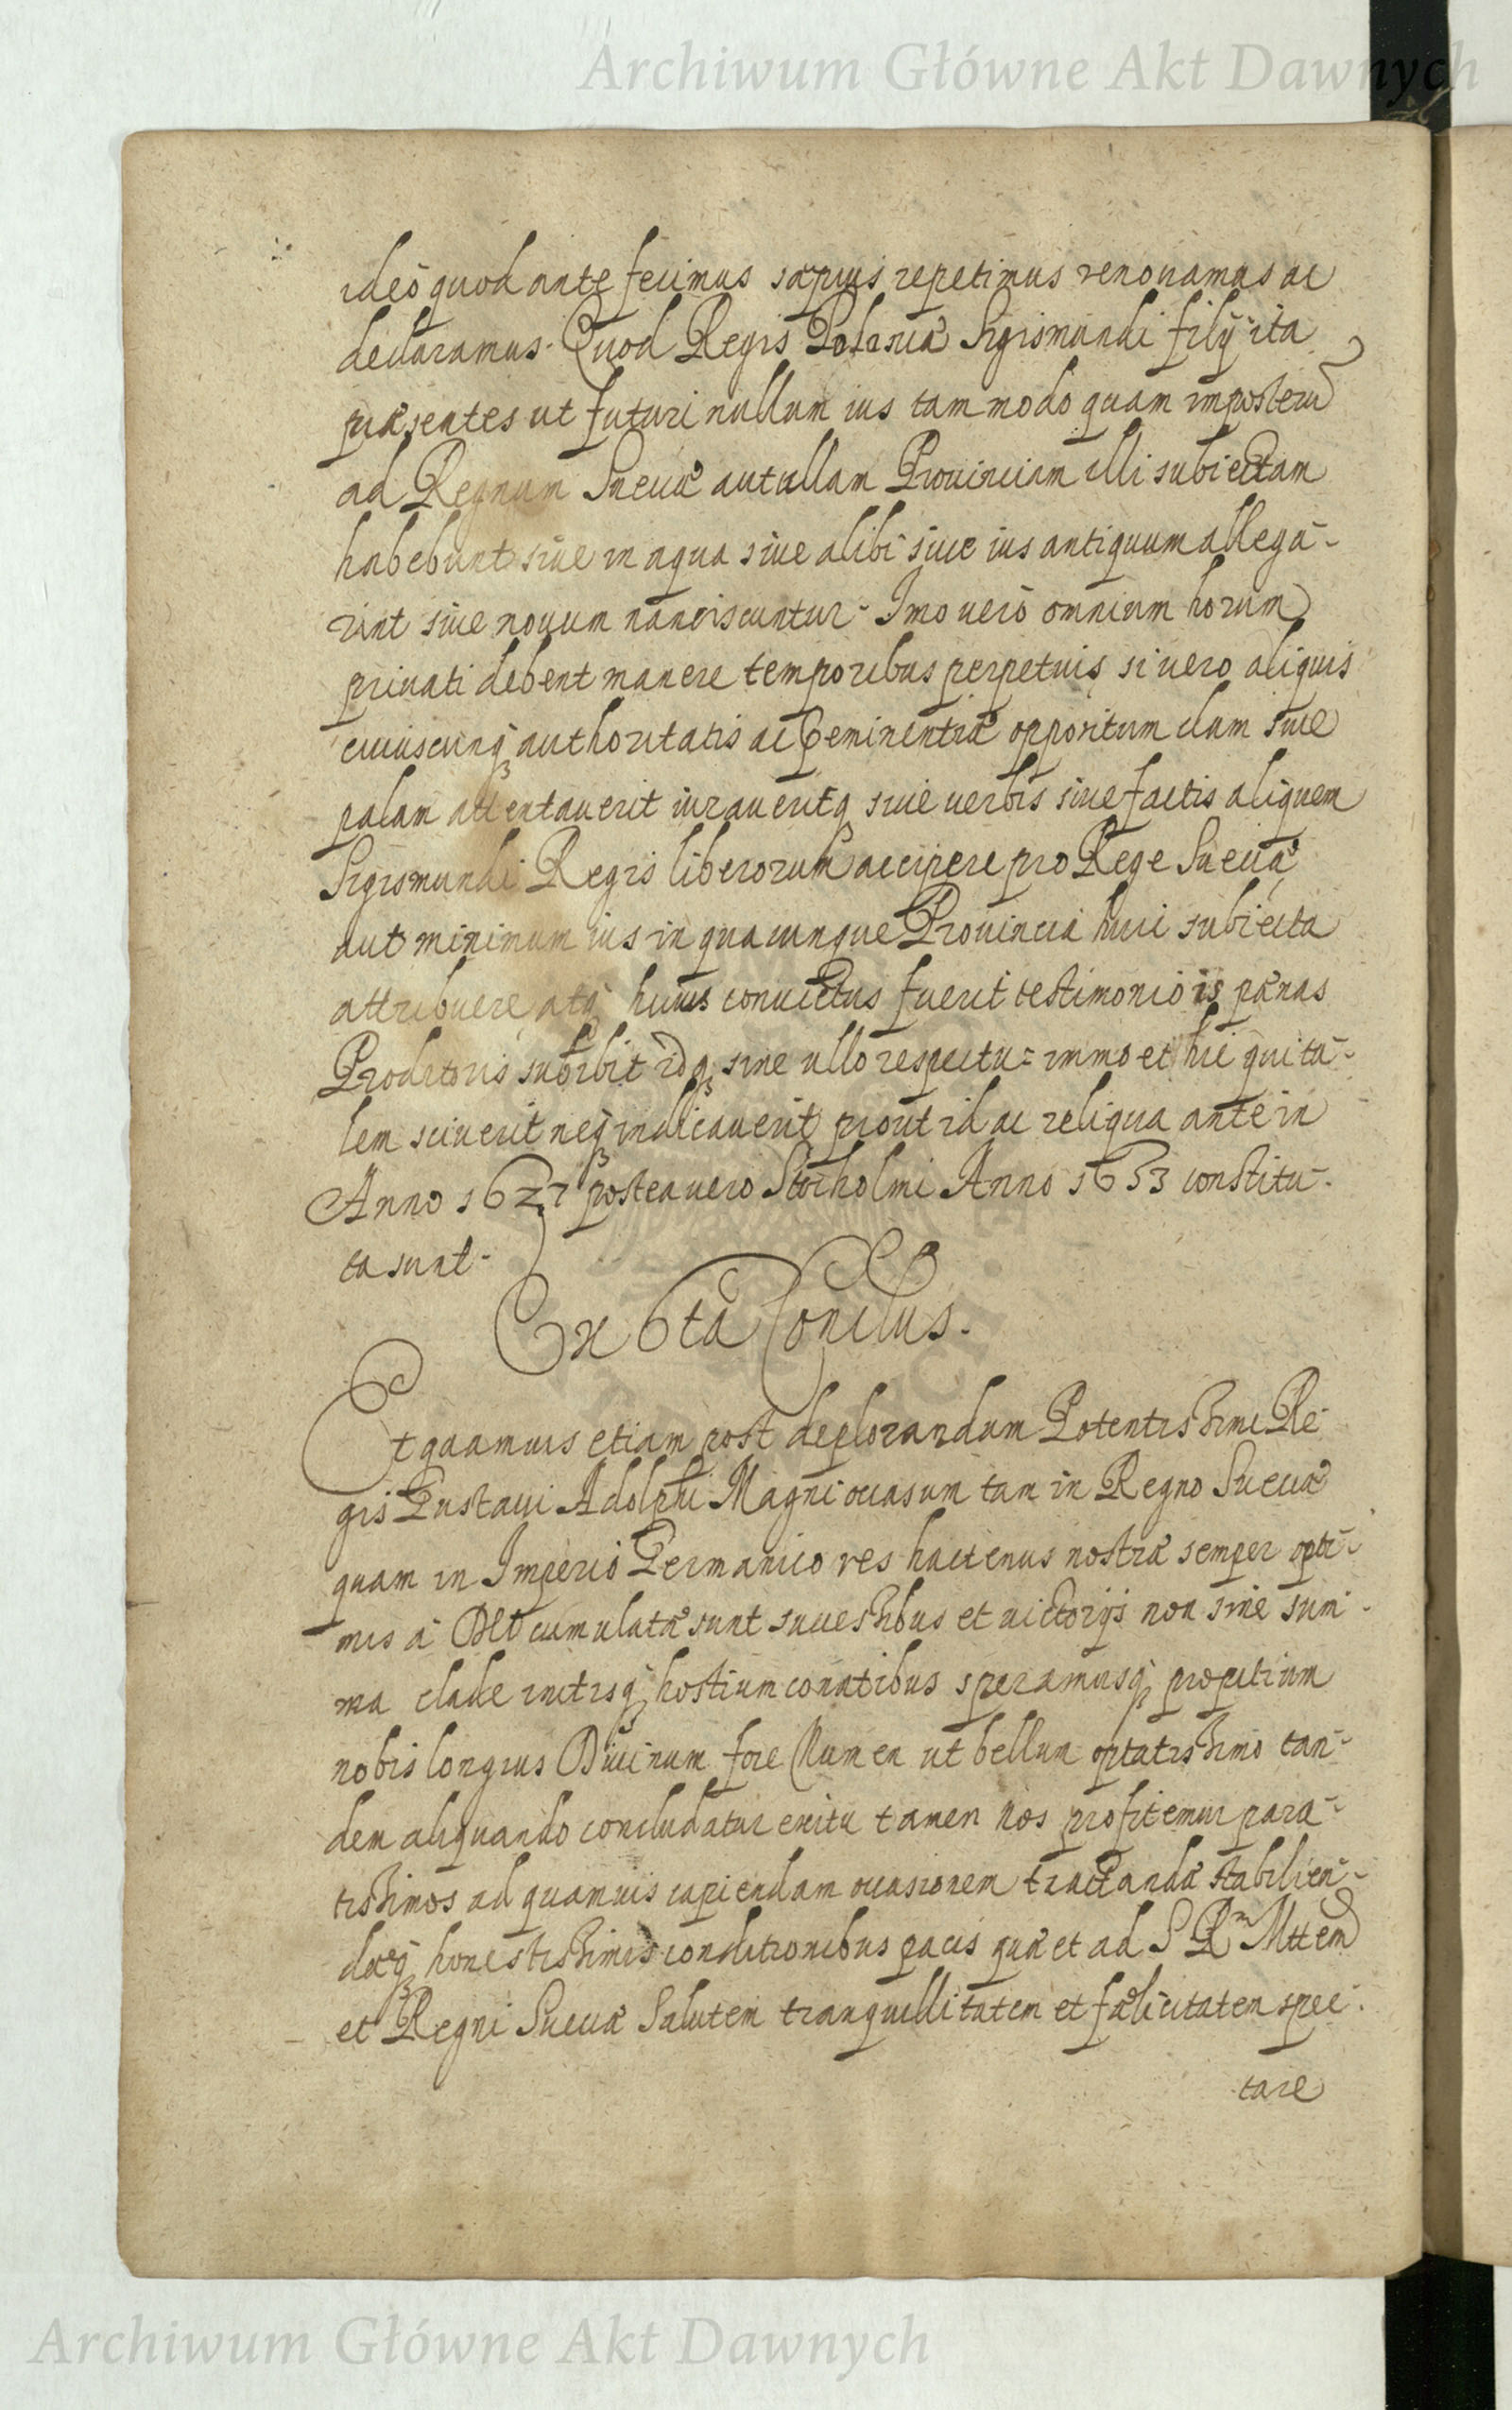 Archiwum Główne Akt Dawnych
ideò quod ante fecimus sæpius repetimus renouamus ac
declaramus. Quod Regis Poloniæ Sigismundi filij ita
præsentes ut futuri nullum ius tam modo quam imposterũ
ad Regnum Sueciæ aut ullam Prouinciam illi subiectam
habebunt siue in aqua siue alibi siue ius antiquum allega-
rint siue nouum nanciscuntur. Imo uerò omnium horum
priuati debent manere temporibus perpetuis si uero aliquis
cuiuscunq authoritatis ac Peminentiæ oppositum clam siue
palam attentauerit iuraueritq siue uerbis siue factis aliquem
Sigismundi Regis liberorum accipere pro Rege Sueciæ
aut minimum ius in quacunque Prouincia huic subiecta
attribuere, atq huius conuictus fuerit testimonio is pænas
Proditoris subibit idq sine ullo respectu = immo et hic qui ta-
lem sciuerit neq indicauerit prout id ac reliqua ante in
Anno 1627 postea uero Stocholmi Anno 1633 constitu-
ta sunt.
Ex 6ta Conclus.
Et quamuis etiam post deplorandum Potentissimi Re-
gis Gustaui Adolphi Magni occasum tam in Regno Sueciæ
quam in Imperio Germanico res hactenus nostræ semper opti-
mis à Deo cumulatæ sunt successibus et uictorijs non sine sum-
ma clade irritisq hostium conatibus speramusq propitium
nobis longius Diuinum fore Numen ut bellum optatissimo tan-
dem aliquando concludatur exitu tamen nos profitemur para-
tissimos ad quamuis capiendam occasionem tractandæ stabilien-
dæq honestissimis conditionibus pacis quæ et ad S Rm Mttem
et Regni Sueciæ Salutem tranquillitatem et fælicitatem spec-
tare
Archiwum Główne Akt Dawnych